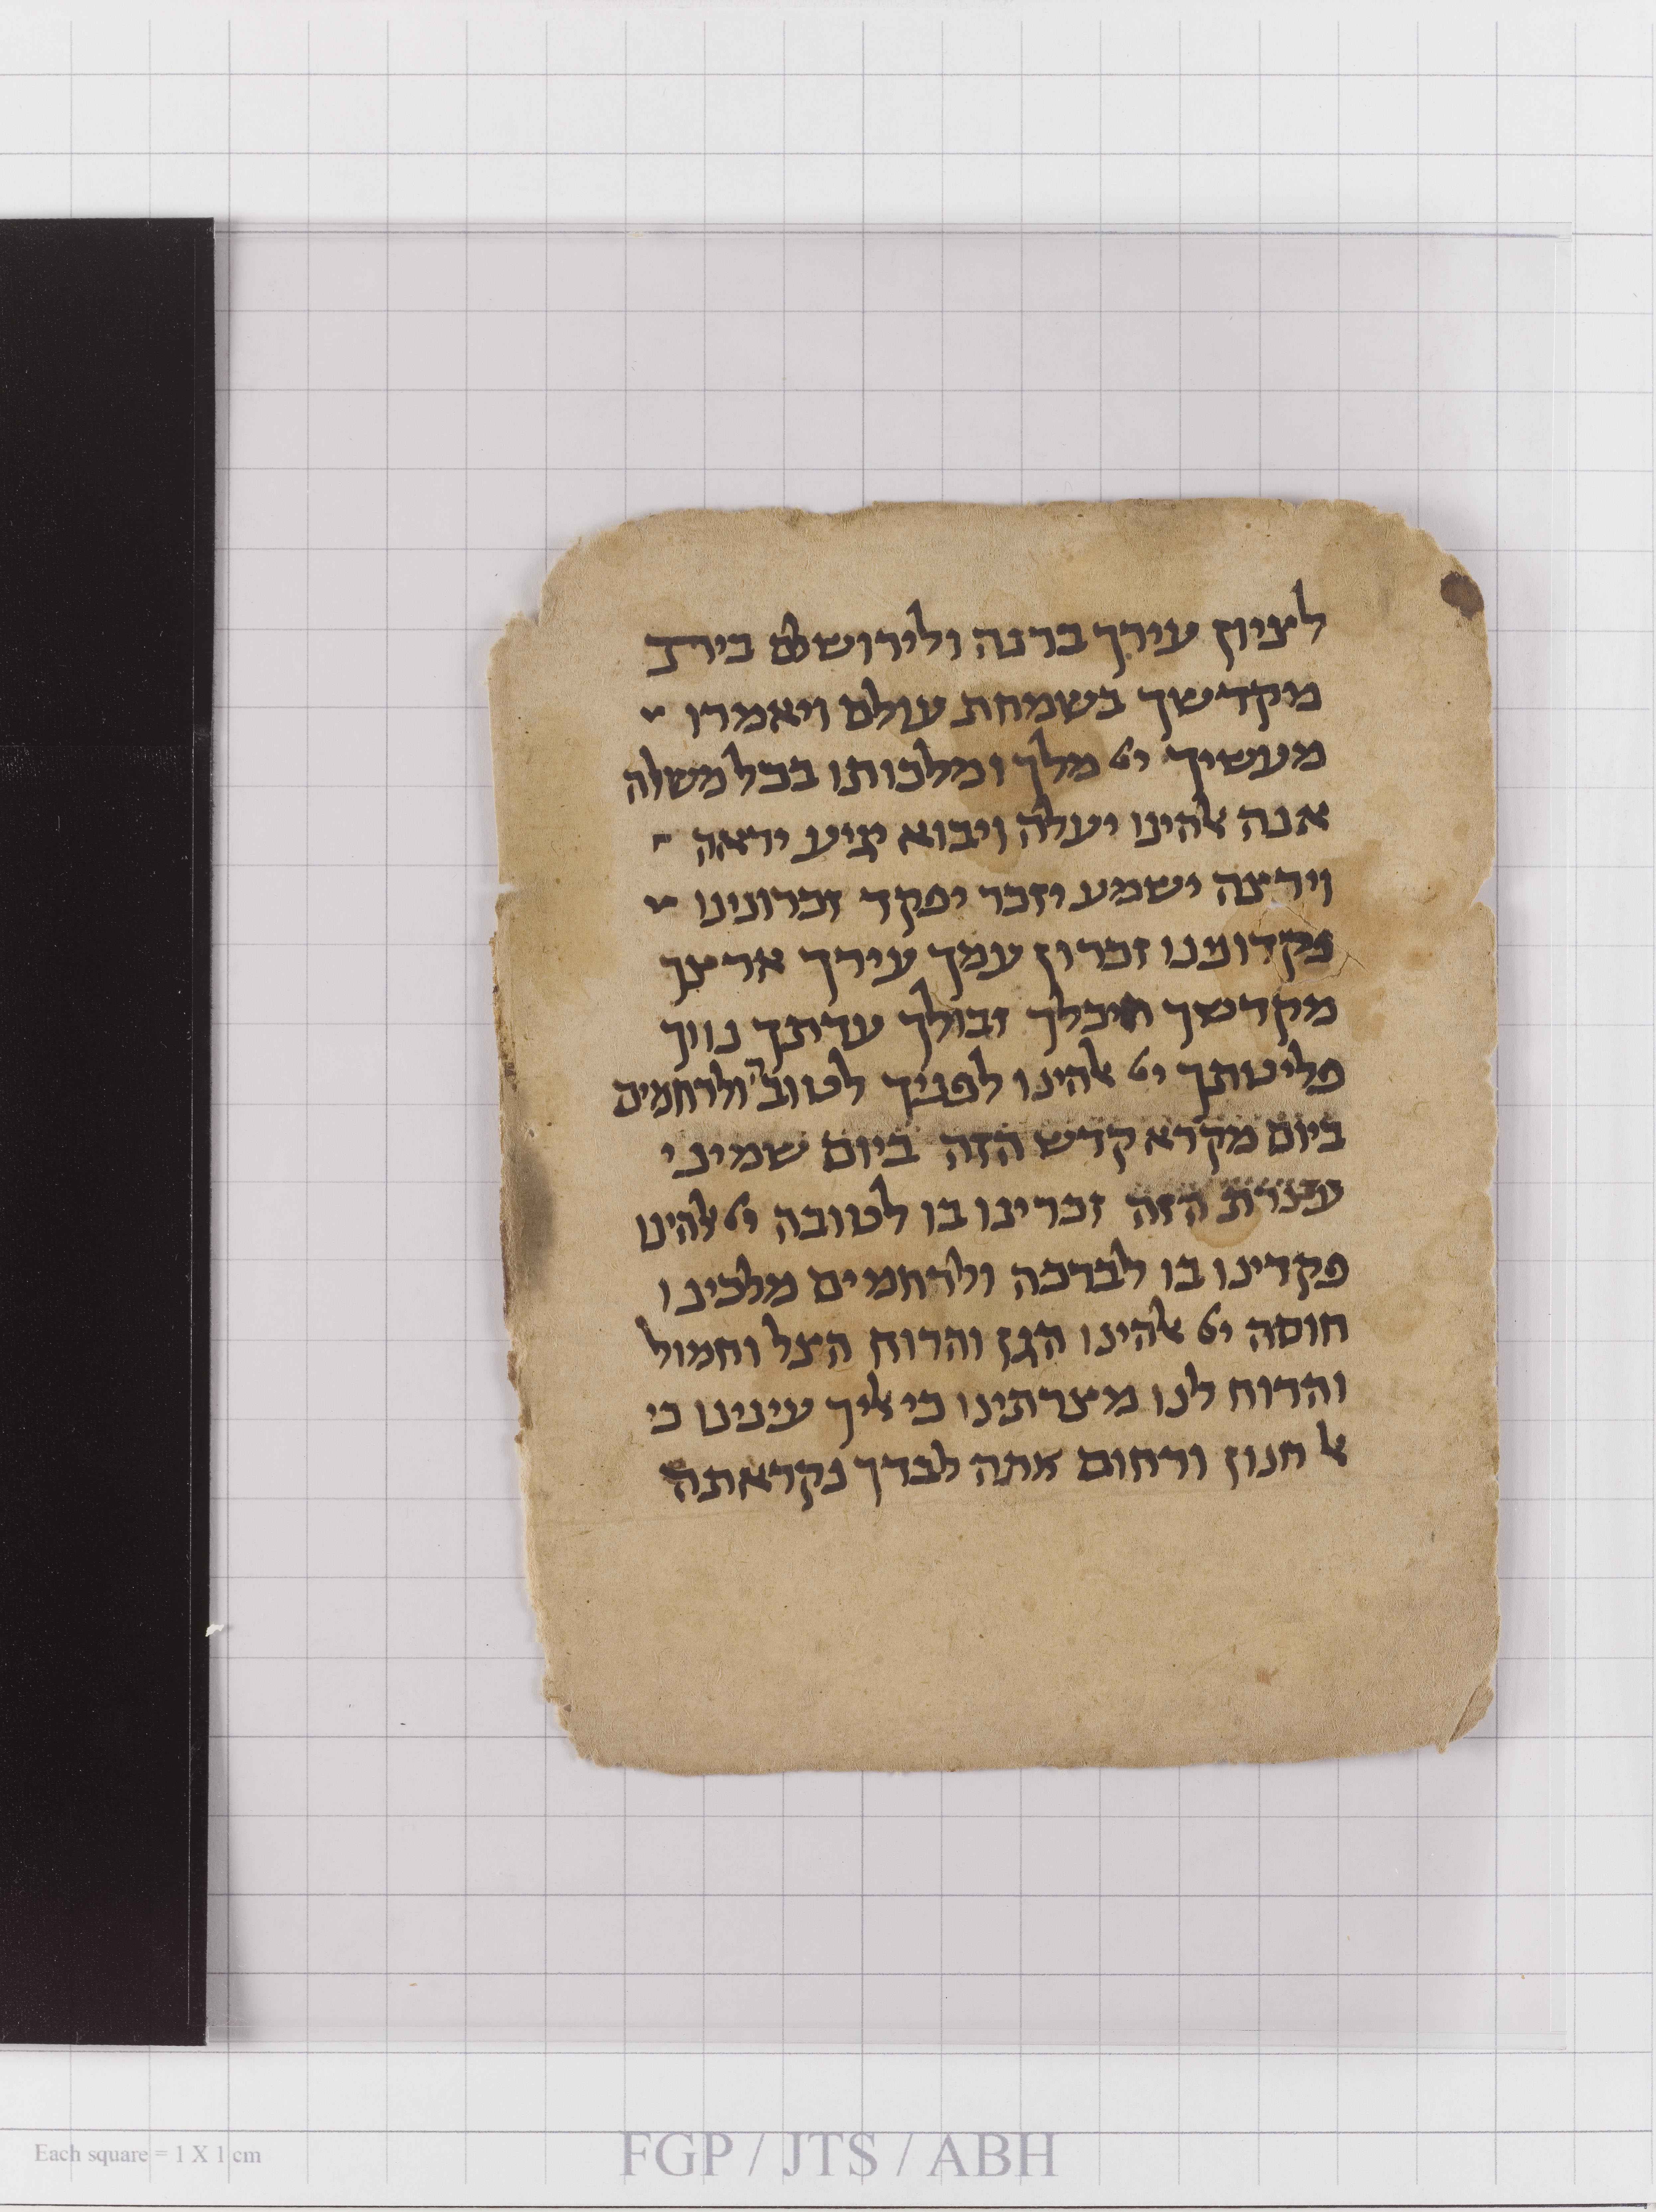 לציון עירך ברנה ולירושלם בית
מקדשך בשמחת עולם ויאמרו
מעשיך יי מלך ומלכותו בכל משלה
אנה אלהינו יעלה ויבוא יגיע יראה
וירצה ישמע יזכר יפקד זכרונינו
פקדוננו זכרון עמך עירך ארצך
מקדשך היכלך זבולך עדתך נווך
פליטתך יי אלהינו לפניך לטובה ולרחמים
ביום מקרא קדש הזה ביום שמיני
עצרת הזה זכרינו בו לטובה יי אלהינו
פקדינו בו לברכה ולרחמים מלכינו
חוסה יי אלהינו הגן והרוח הצל וחמול
והרוח לנו מצרתינו כי אליך עינינו כי
אל חנון ורחום אתה לבדך נקראתה
Each square = 1 X 1 cm
FGP / JTS / ABH